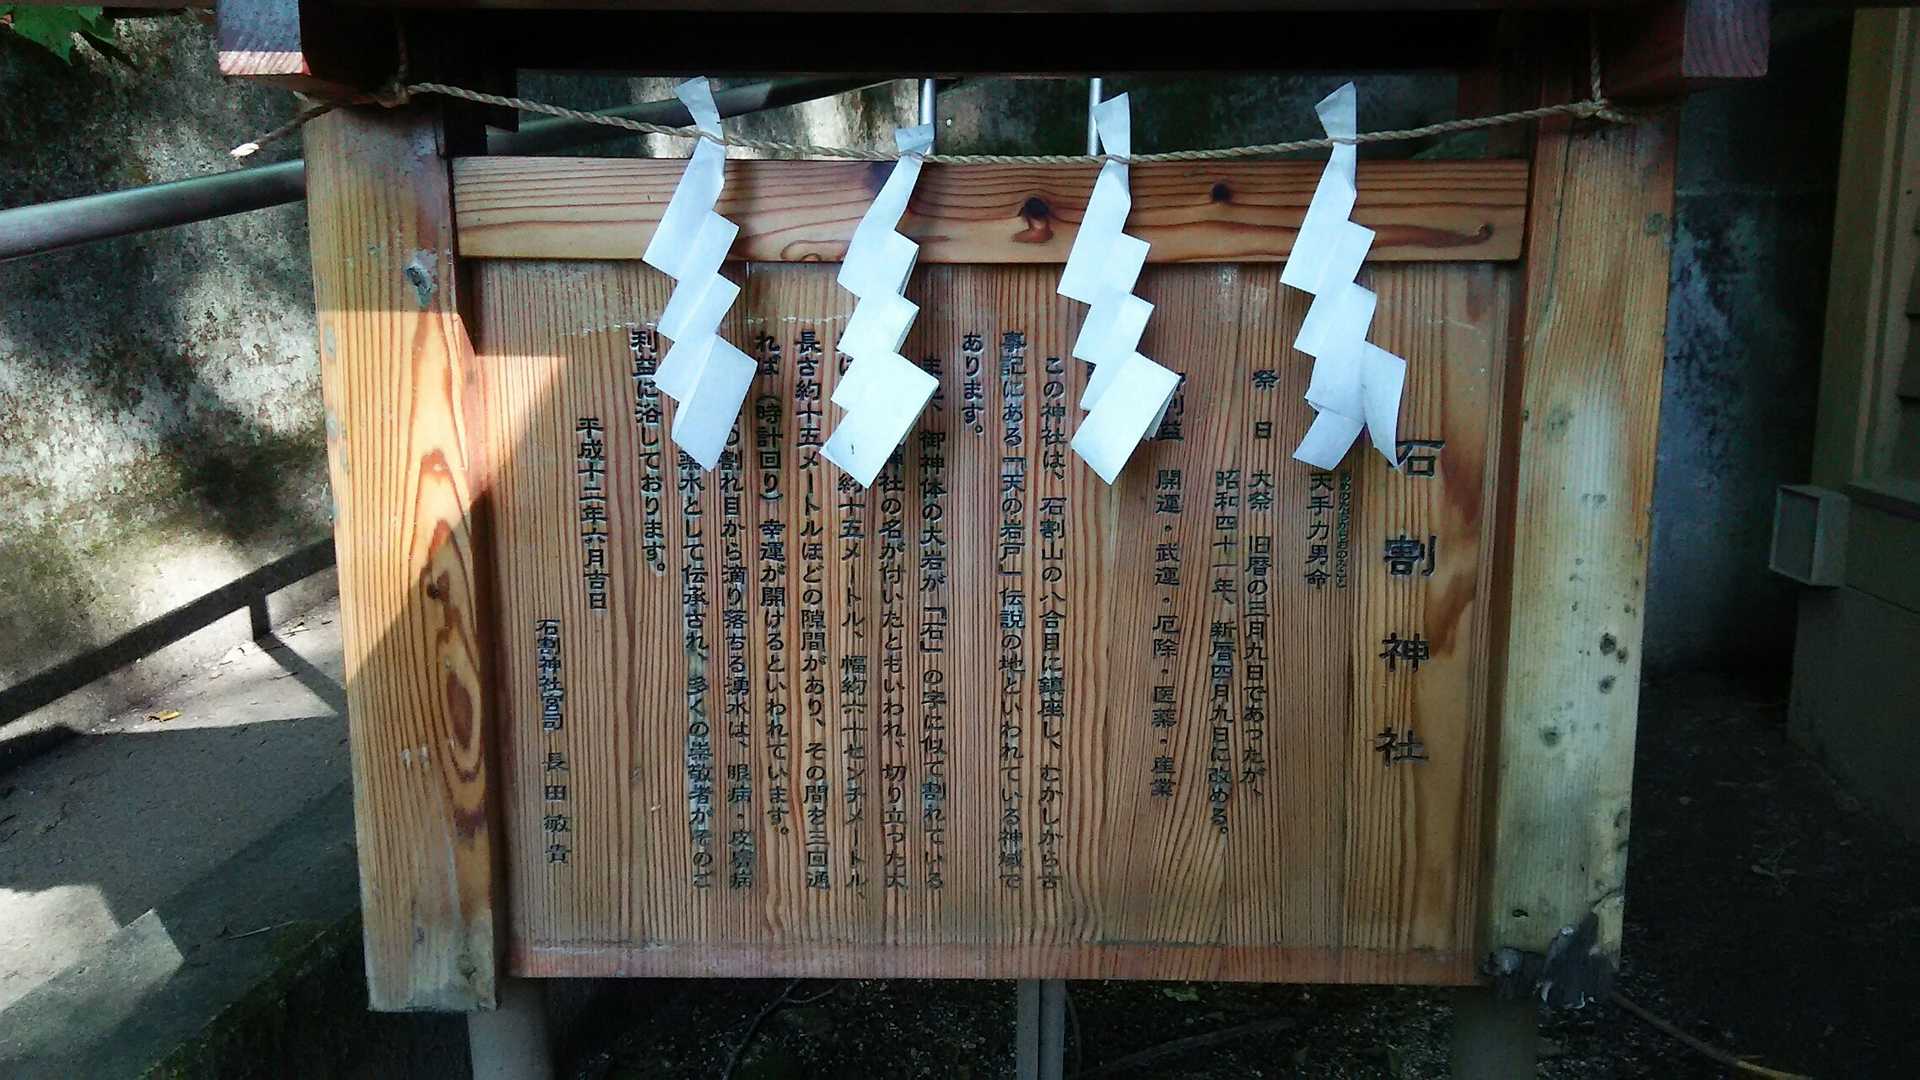 石割神社
天手力男命
祭日 大祭 旧暦の三月九日であったが、
昭和四十一年、新暦四月九日に改める。
利益 開運・武運・厄除・医薬・産業
この神社は、石割山の八合目に鎮座し、むかしから古
事記にある「天の岩戸」伝説の地といわれている神域で
あります。
御神体の大岩が「石」の字に似て割れている
神社の名が付いたともいわれ、切り立った大
約十五メートル、幅約六十センチメートル、
長さ約十五メートルほどの隙間があり、その間を三回通
れば(時計回り)幸運が開けるといわれています。
の割れ目から滴り落ちる湧水は、眼病・皮膚病
薬水として伝承され、多くの崇敬者がそのご
利益に浴しております。
平成十二年六月吉日
石割神社宮司 長田敏貴